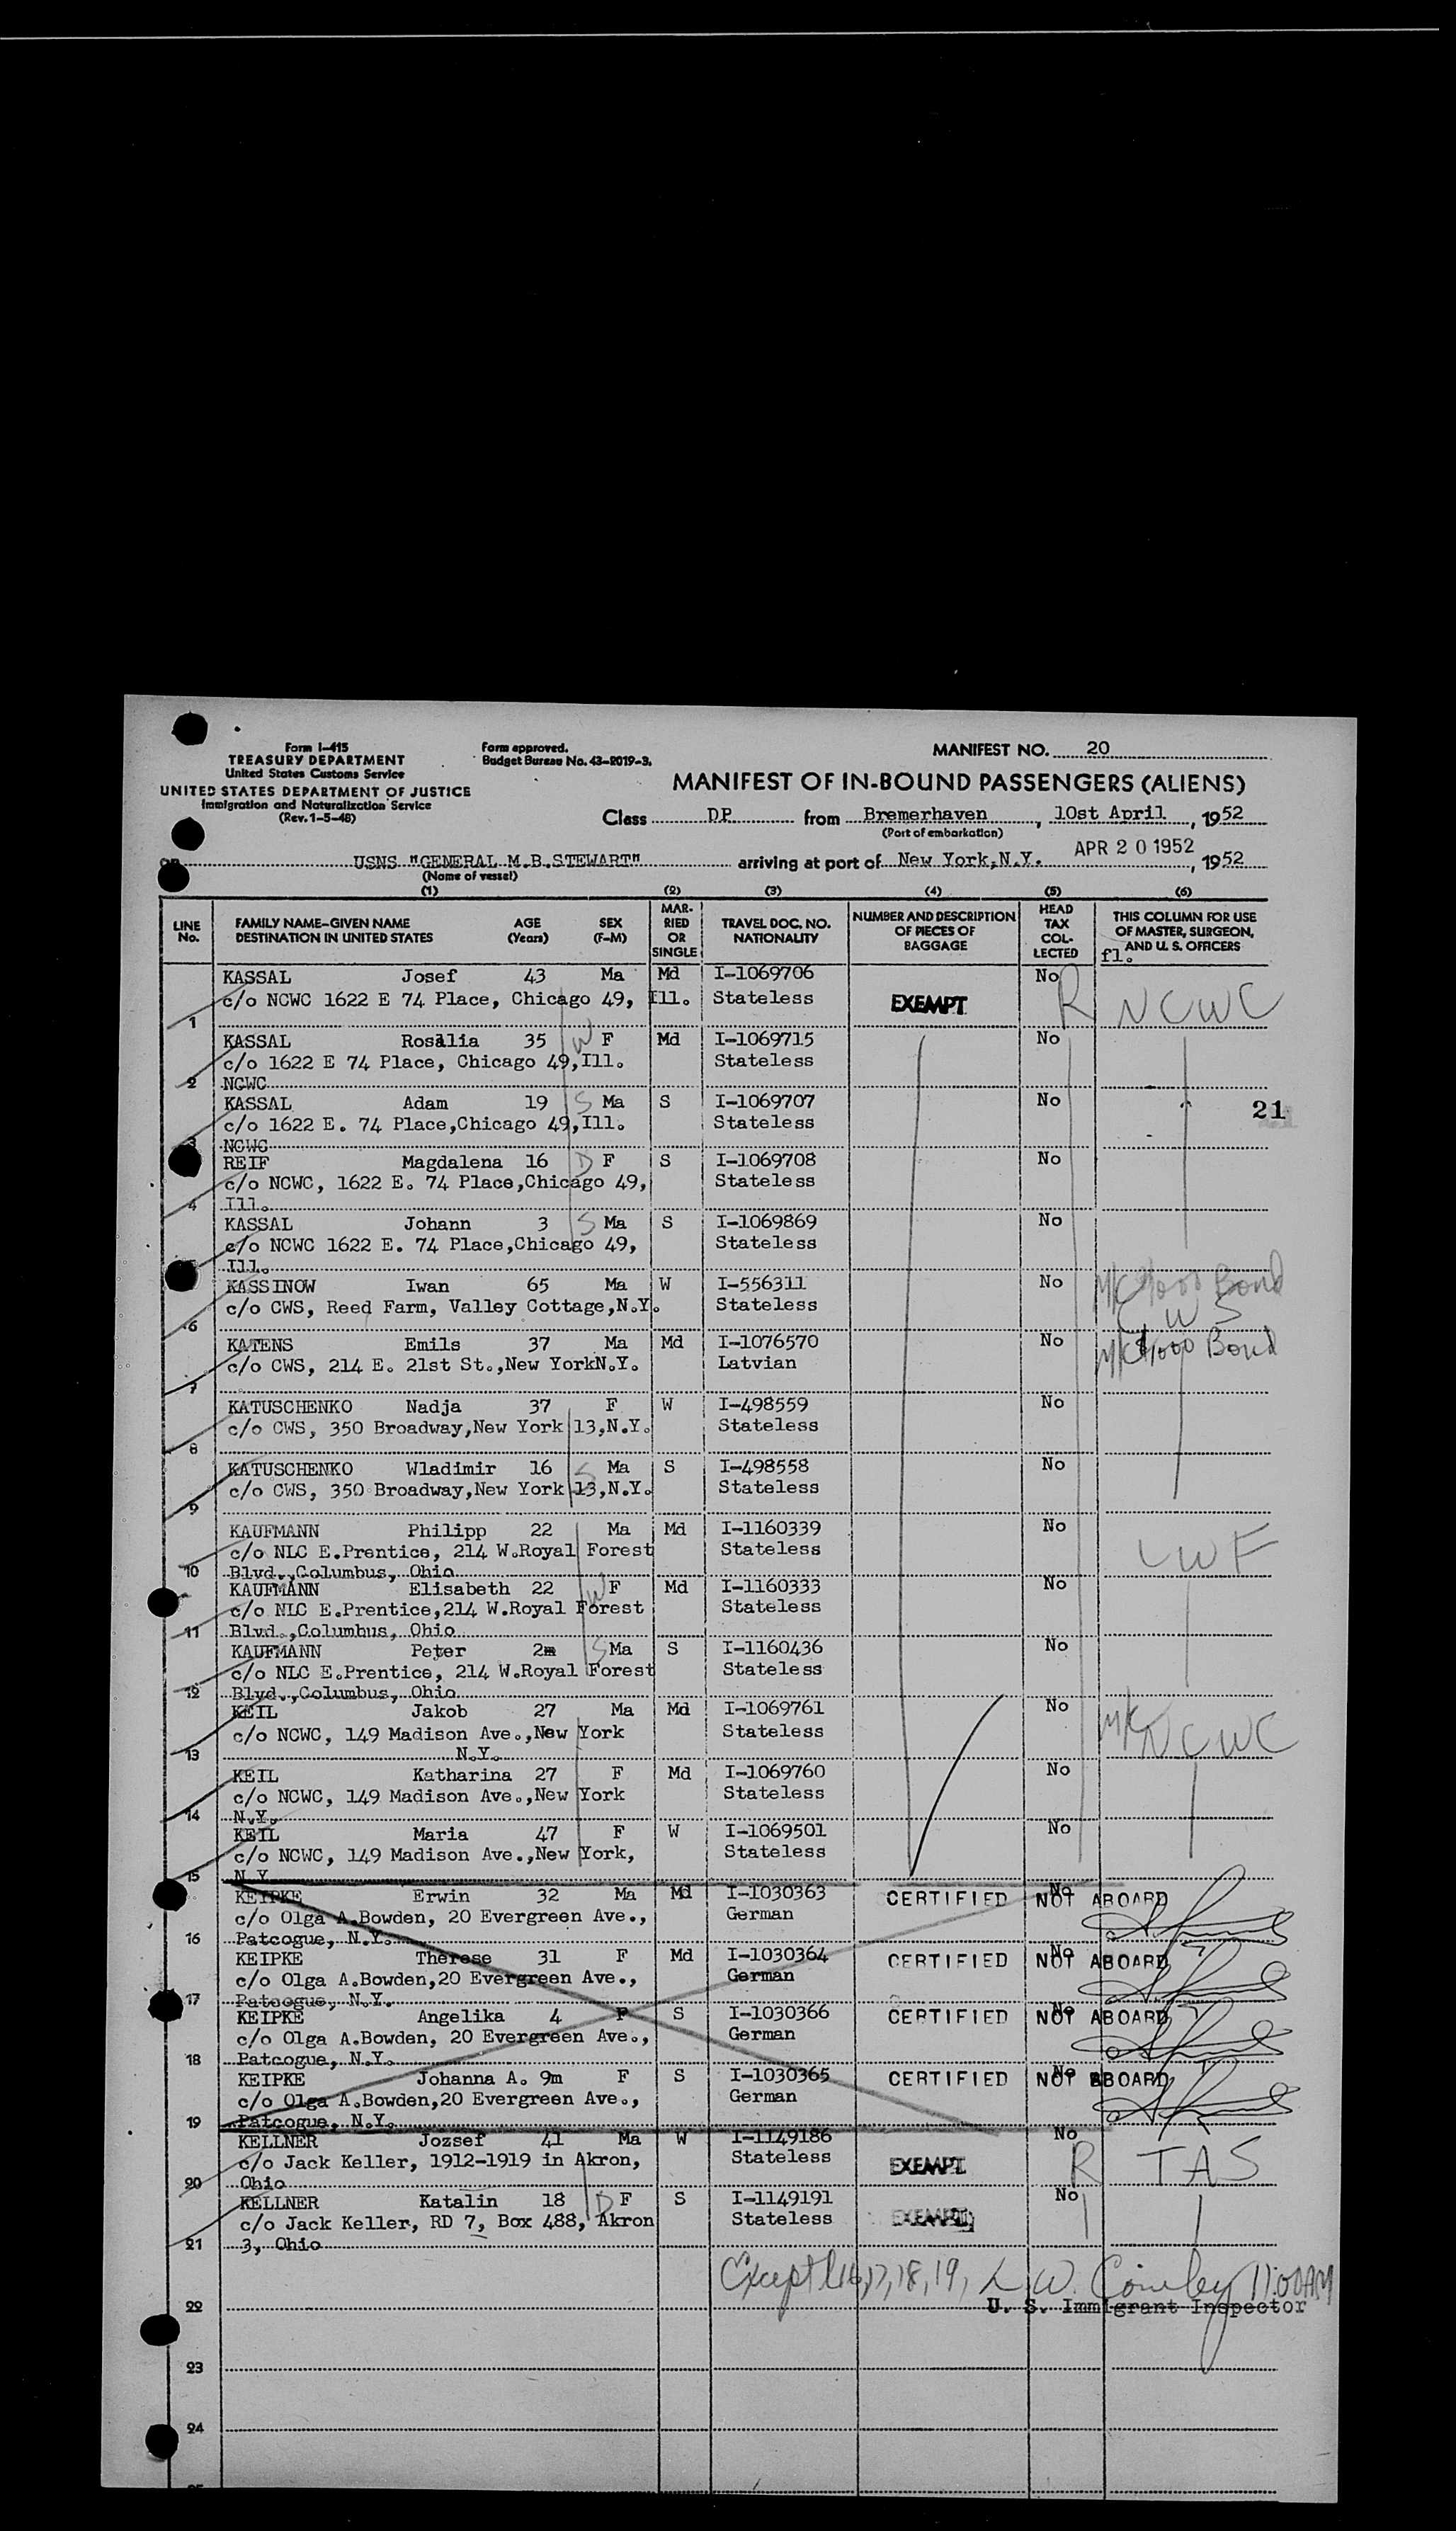 Form I-415
TREASURY DEPARTMENT
United States Customs Service
UNITED STATES DEPARTMENT OF JUSTICE
Immigration and Naturalization Service
(Rev. 1-5-48)
Form approved.
Budget Bureau No. 43-R019-3.
MANIFEST NO. 20
MANIFEST OF IN-BOUND PASSENGERS (ALIENS)
Class DP from Bremerhaven, 10st April, 1952
(Port of embarkation)
on USNS "GENERAL M.B.STEWART" arriving at port of New York,N.Y. APR 20 1952, 1952
(Name of vessel)
(1) (2) (3) (4) (5) (6)
LINE No. FAMILY NAME-GIVEN NAME DESTINATION IN UNITED STATES AGE (Years) SEX (F-M) MARRIED OR SINGLE TRAVEL DOC. NO. NATIONALITY NUMBER AND DESCRIPTION OF PIECES OF BAGGAGE HEAD TAX COLLECTED THIS COLUMN FOR USE OF MASTER, SURGEON, AND U. S. OFFICERS
fl.
KASSAL Josef 43 Ma Md I-1069706 No
c/o NCWC 1622 E 74 Place, Chicago 49, Ill. Stateless EXEMPT R NCWC
1
KASSAL Rosalia 35 W F Md I-1069715 No
c/o 1622 E 74 Place, Chicago 49,Ill. Stateless
2 NCWC
KASSAL Adam 19 S Ma S I-1069707 No
c/o 1622 E. 74 Place,Chicago 49,Ill. Stateless 21
3 NCWC
REIF Magdalena 16 D F S I-1069708 No
c/o NCWC, 1622 E. 74 Place,Chicago 49, Stateless
4 Ill.
KASSAL Johann 3 S Ma S I-1069869 No
c/o NCWC 1622 E. 74 Place,Chicago 49, Stateless
Ill.
KASSINOW Iwan 65 Ma W I-556311 No Bond
c/o CWS, Reed Farm, Valley Cottage,N.Y. Stateless CWS
6
KATENS Emils 37 Ma Md I-1076570 No $1000 Bond
c/o CWS, 214 E. 21st St.,New YorkN.Y. Latvian
7
KATUSCHENKO Nadja 37 F W I-498559 No
c/o CWS, 350 Broadway,New York 13,N.Y. Stateless
8
KATUSCHENKO Wladimir 16 S Ma S I-498558 No
c/o CWS, 350 Broadway,New York 13,N.Y. Stateless
9
KAUFMANN Philipp 22 Ma Md I-1160339 No
c/o NLC E.Prentice, 214 W.Royal Forest Stateless LWF
10 Blvd.,Columbus, Ohio
KAUFMANN Elisabeth 22 W F Md I-1160333 No
c/o NLC E.Prentice,214 W.Royal Forest Stateless
11 Blvd.,Columbus, Ohio
KAUFMANN Peter 2m S Ma S I-1160436 No
c/o NLC E.Prentice, 214 W.Royal Forest Stateless
12 Blvd.,Columbus, Ohio
KEIL Jakob 27 Ma Md I-1069761 No
c/o NCWC, 149 Madison Ave.,New York Stateless NCWC
13 N.Y.
KEIL Katharina 27 F Md I-1069760 No
c/o NCWC, 149 Madison Ave.,New York Stateless
14 N.Y.
KEIL Maria 47 F W I-1069501 No
c/o NCWC, 149 Madison Ave.,New York, Stateless
15 N.Y.
KEIPKE Erwin 32 Ma Md I-1030363 CERTIFIED No NOT ABOARD
c/o Olga A.Bowden, 20 Evergreen Ave., German
16 Patcogue, N.Y.
KEIPKE Therese 31 F Md I-1030364 CERTIFIED No NOT ABOARD
c/o Olga A.Bowden,20 Evergreen Ave., German
17 Patcogue, N.Y.
KEIPKE Angelika 4 F S I-1030366 CERTIFIED No NOT ABOARD
c/o Olga A.Bowden, 20 Evergreen Ave., German
18 Patcogue, N.Y.
KEIPKE Johanna A. 9m F S I-1030365 CERTIFIED No NOT ABOARD
c/o Olga A.Bowden,20 Evergreen Ave., German
19 Patcogue, N.Y.
KELLNER Jozsef 41 Ma W I-1149186 No
c/o Jack Keller, 1912-1919 in Akron, Stateless EXEMPT R TAS
20 Ohio
KELLNER Katalin 18 D F S I-1149191 No
c/o Jack Keller, RD 7, Box 488, Akron Stateless EXEMPT
21 3, Ohio
Except 16,17,18,19, L.W. 11:00AM
22 U. S. Immigrant Inspector
23
24